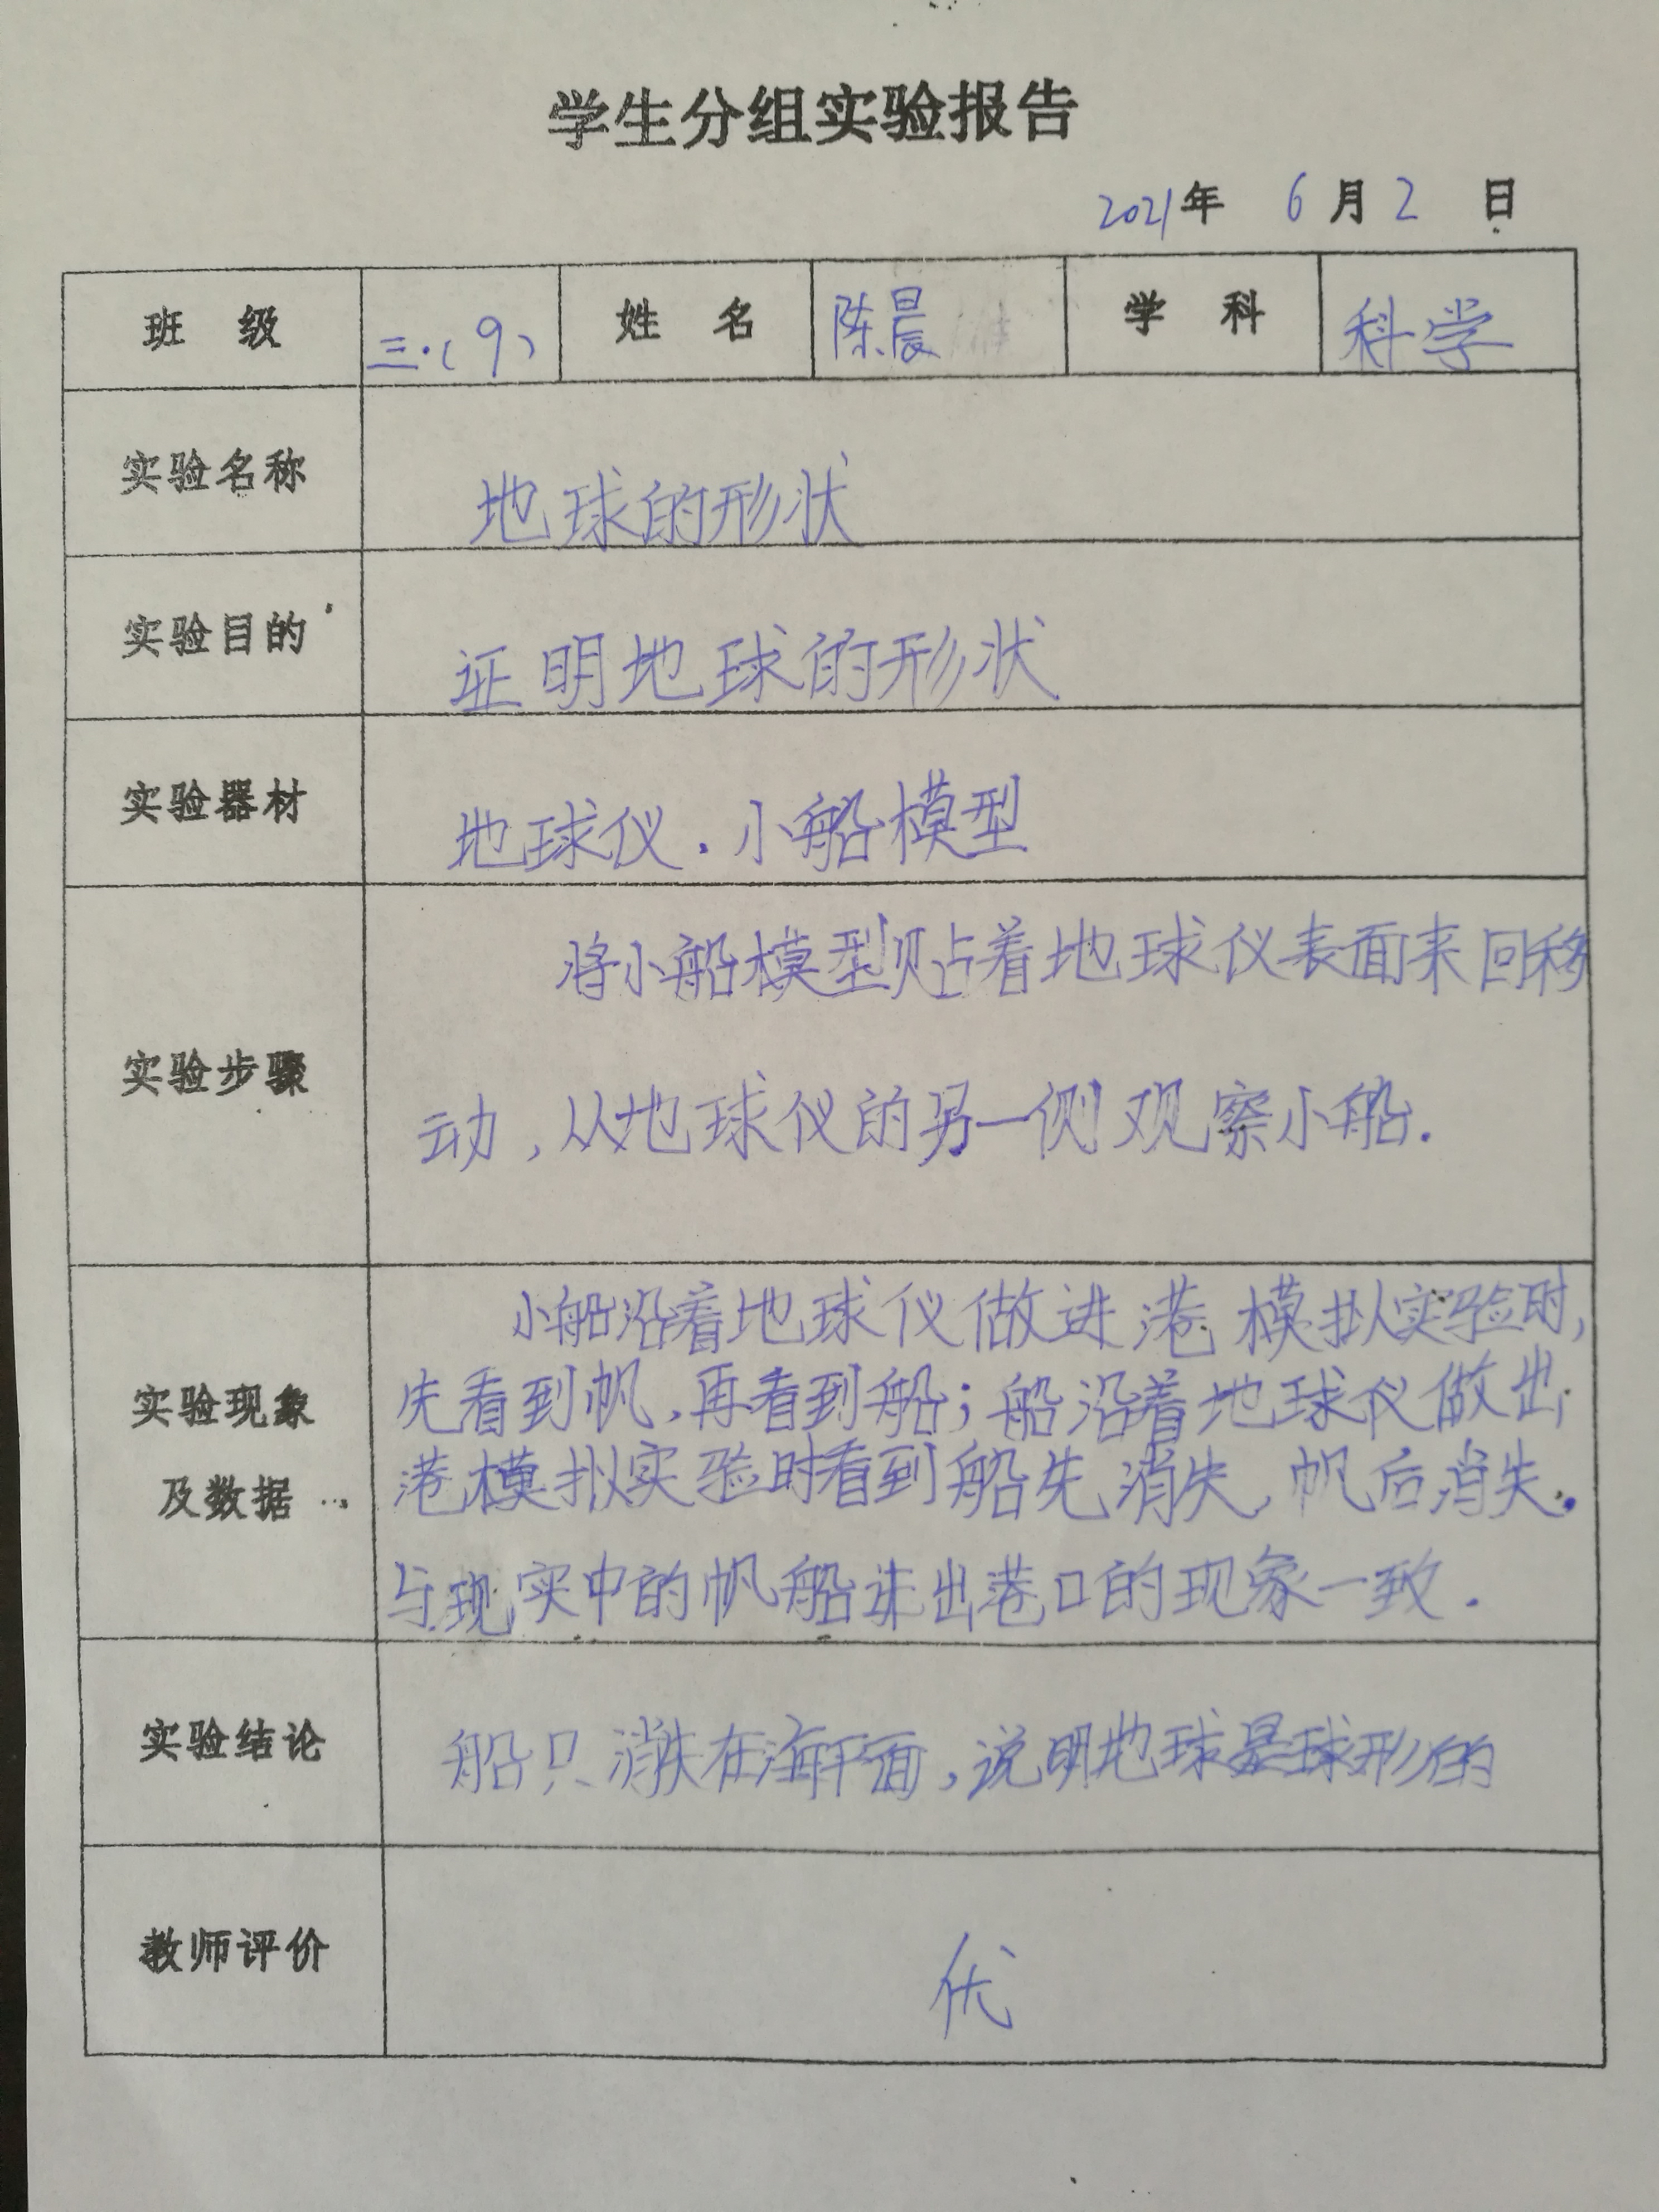 学生分组实验报告
2021年 6月2 日
班 级 三.(9) 姓 名 陈晨 学 科 科学
实验名称 地球的形状
实验目的 证明地球的形状
实验器材 地球仪.小船模型
将小船模型贴着地球仪表面来回移
实验步骤
动,从地球仪的另一侧观察小船.
小船沿着地球仪做进港模拟实验时,
实验现象 先看到帆,再看到船;船沿着地球仪做出
及数据 港模拟实验时看到船先消失,帆后消失.
与现实中的帆船进出港口的现象一致.
实验结论 船只消失在海平面,说明地球是球形的
教师评价 优